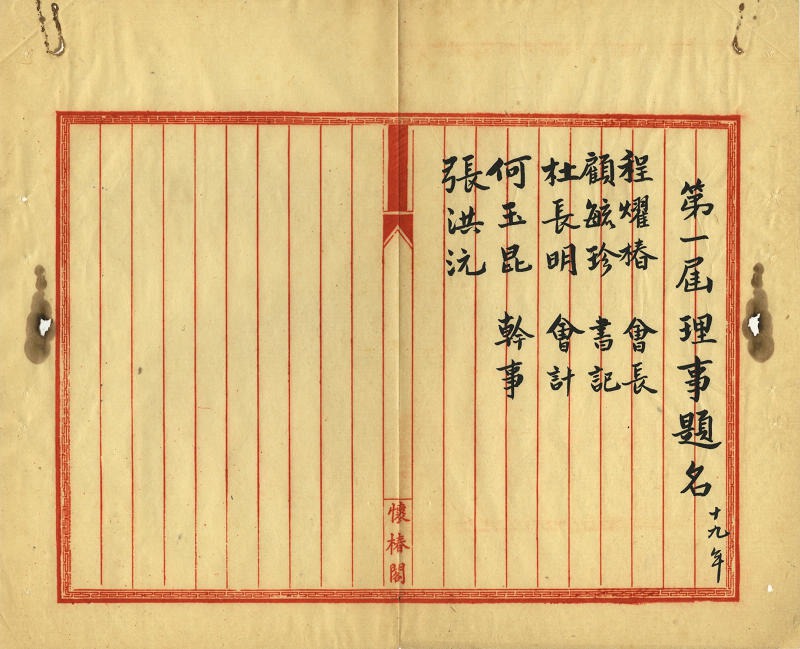 第一届理事題名 十九年
程耀椿 會長
顧毓珍 書記
杜長明 會計
何玉昆 幹事
張洪沅
懷椿閣